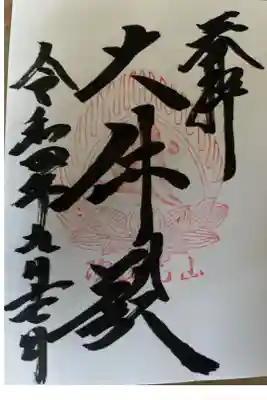 奉拝
大師殿
令和四年九月 日